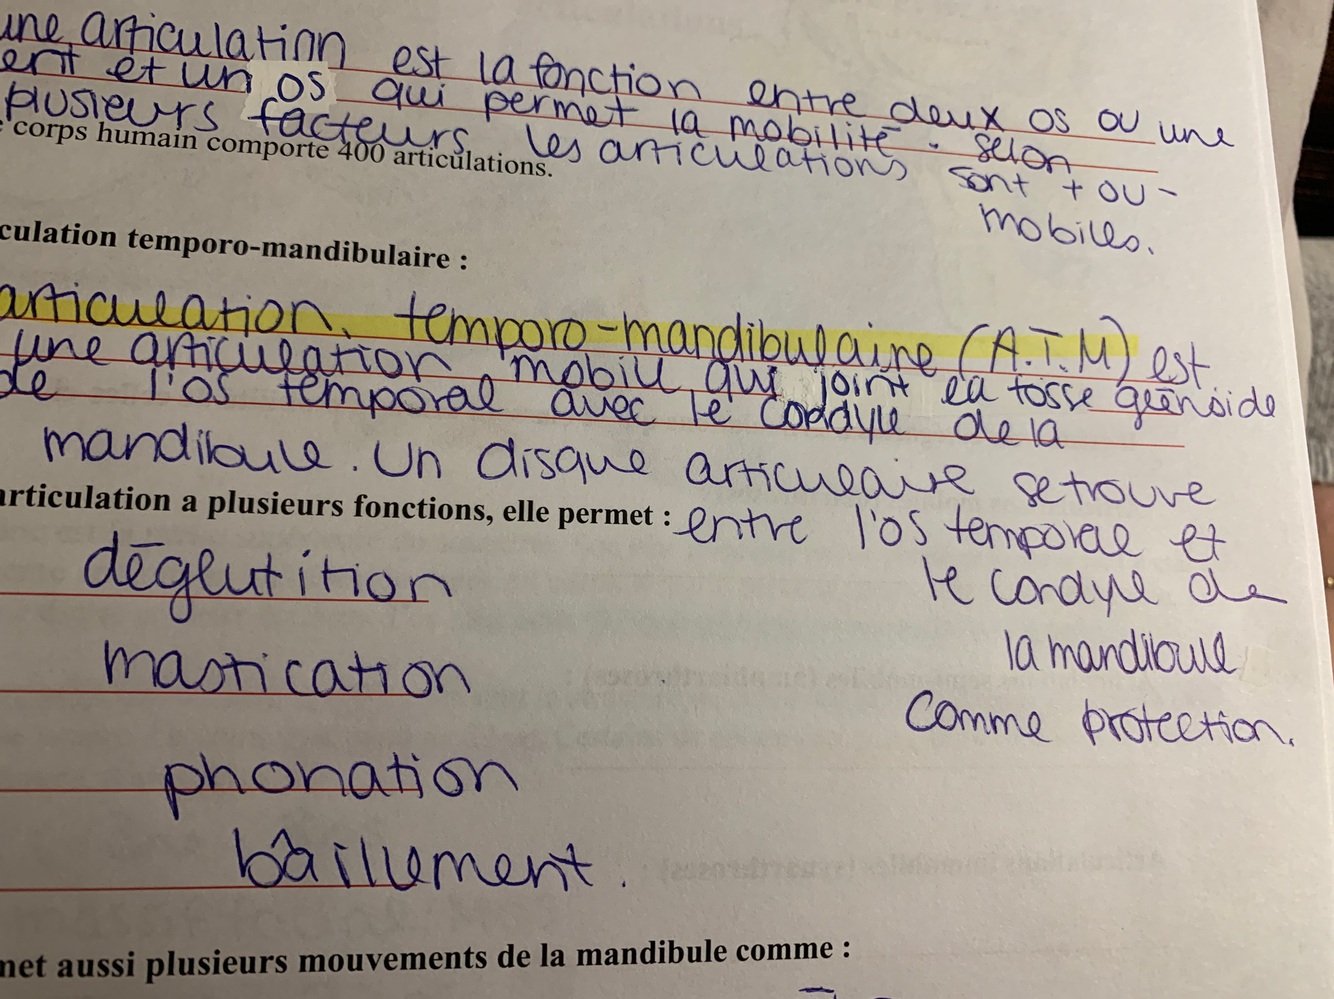 une articulation est la fonction entre deux os ou une
ent et un os qui permet la mobilité. selon
plusieurs facteurs, les articulations sont + ou -
mobiles.
corps humain comporte 400 articulations.
culation temporo-mandibulaire :
articulation temporo-mandibulaire (A.T.M) est
une articulation mobile qui joint la fosse glénoïde
de l'os temporal avec le condyle de la
mandibule. Un disque articulaire se trouve
entre l'os temporal et
le condyle de
la mandibule
comme protection.
articulation a plusieurs fonctions, elle permet :
déglutition
mastication
phonation
bâillement.
met aussi plusieurs mouvements de la mandibule comme :